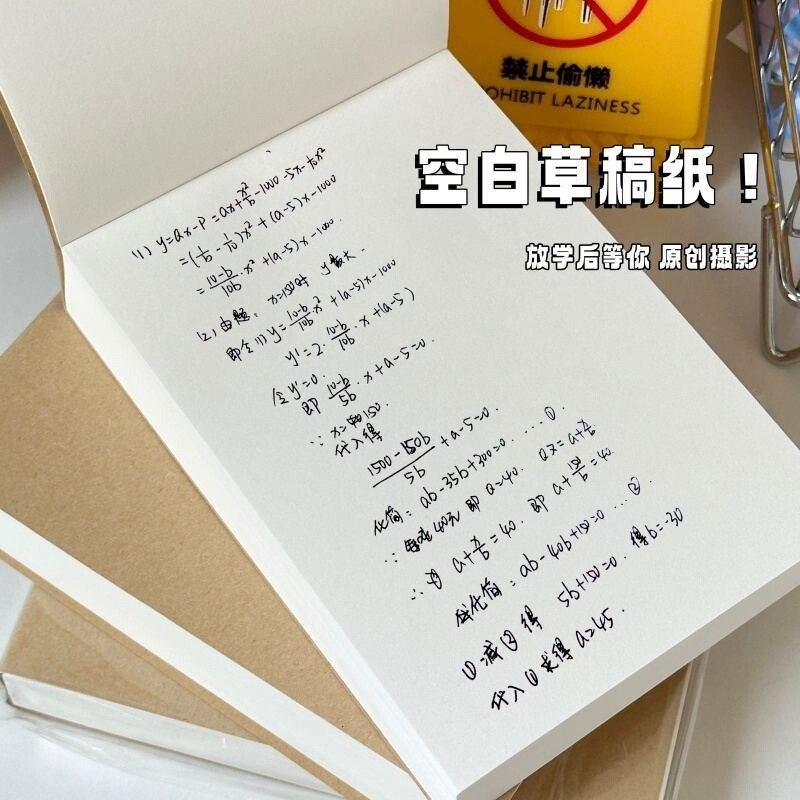 禁止偷懒
OHIBIT LAZINESS
空白草稿纸！
放学后等你 原创摄影
(1) y=ax-p=ax+x²/b-1000-5x-1/10x²
=(1/b-1/10)x²+(a-5)x-1000
=10-b/10b·x²+(a-5)x-1000.
(2) 由题: x=150时 y最大.
即令(1)y=10-b/10b x²+(a-5)x-1000
y'=2·10-b/10b·x+(a-5)
令y'=0.
即 10-b/5b·x+a-5=0.
∵ x=150.
代入得
1500-150b/5b+a-5=0.
化简: ab-35b+300=0. ····①.
∵ 40元 即 Q=40. Qx=a+x/b
∴ a+x/b=40. 即 a+150/b=40.
化简: ab-40b+150=0 ···②.
①减②得 5b+150=0. 得b=-30
代入①求得 a=45.